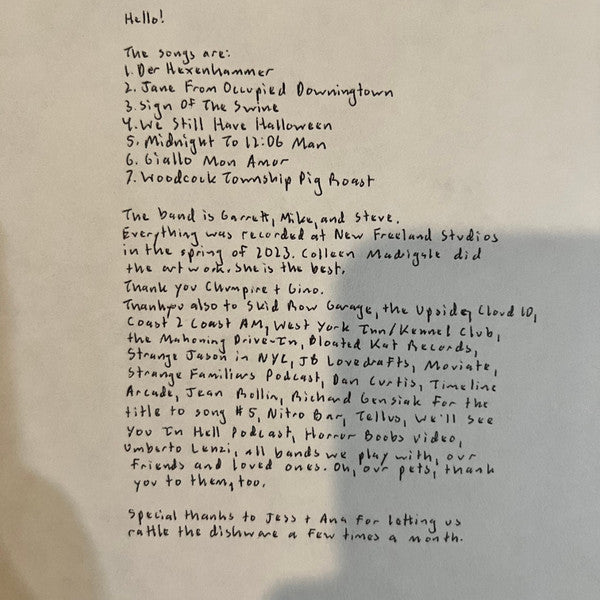 Hello!
The songs are:
1. Der Hexenhammer
2. Jane From Occupied Downingtown
3. Sign Of The Swine
4. We Still Have Halloween
5. Midnight To 12:06 Man
6. Giallo Mon Amor
7. Woodcock Township Pig Roast
The band is Garrett, Mike, and Steve.
Everything was recorded at New Freeland Studios
in the spring of 2023. Colleen Madigale did
the artwork. She is the best.
Thank you Chumpire + Gino.
Thankyou also to Skid Row Garage, the Upside, Cloud 10,
Coast 2 Coast AM, West York Inn/Kennel Club,
the Mahoning Drive-In, Bloated Kat Records,
Strange Jason in NYC, JB Lovedrafts, Moviate,
Strange Familiars Podcast, Dan Curtis, Timeline
Arcade, Jean Rollin, Richard Gensiak for the
title to song #5, Nitro Bar, Tellus, We'll See
You In Hell Podcast, Horror Boobs Video,
Umberto Lenzi, all bands we play with, our
friends and loved ones. Oh, our pets, thank
you to them, too.
Special thanks to Jess + Ana for letting us
rattle the dishware a few times a month.